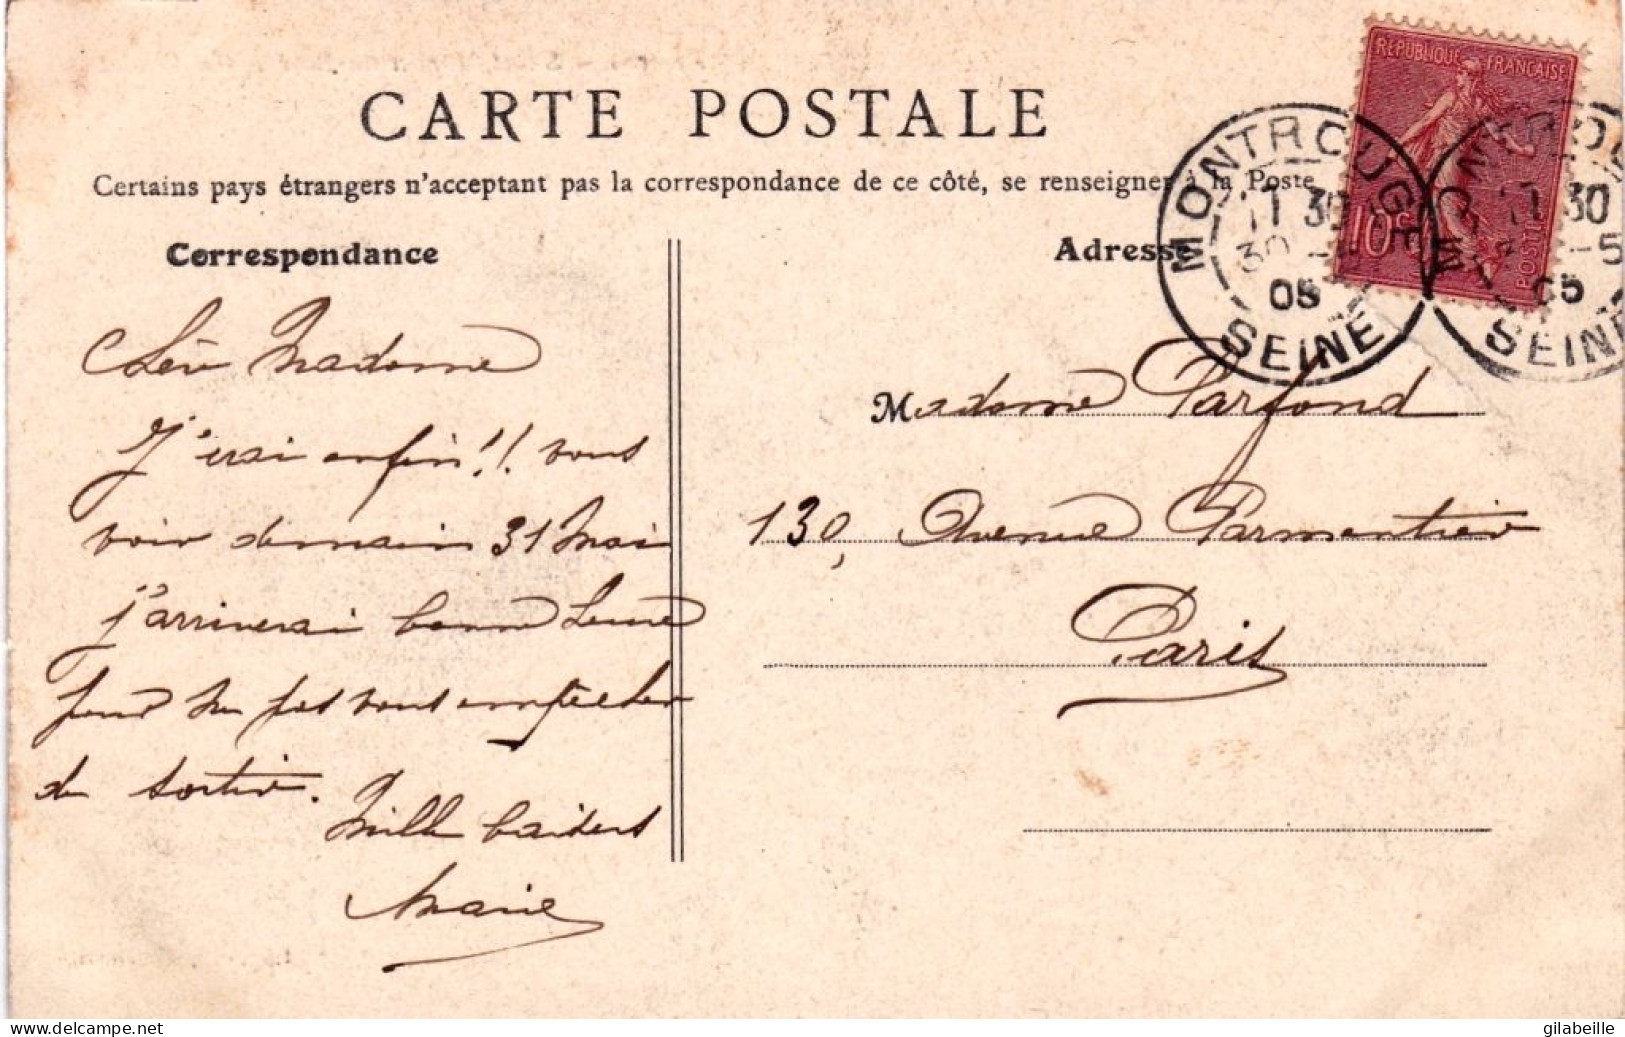 CARTE POSTALE
Certains pays étrangers n'acceptant pas la correspondance de ce côté, se renseigner à la Poste
Correspondance
Adresse
RÉPUBLIQUE FRANÇAISE
10c
POSTES
MONTROUGE
17 30
30 -5
05
SEINE
17 30
-5
05
SEINE
Chère Madame
J'irai enfin!! vous
voir demain 31 Mai
j'arriverai bonne heure
pour ne pas vous empêcher
de sortir.
Mille baisers
Marie
Madame Parfond
130, Avenue Parmentier
Paris
www.delcampe.net
gilabeille